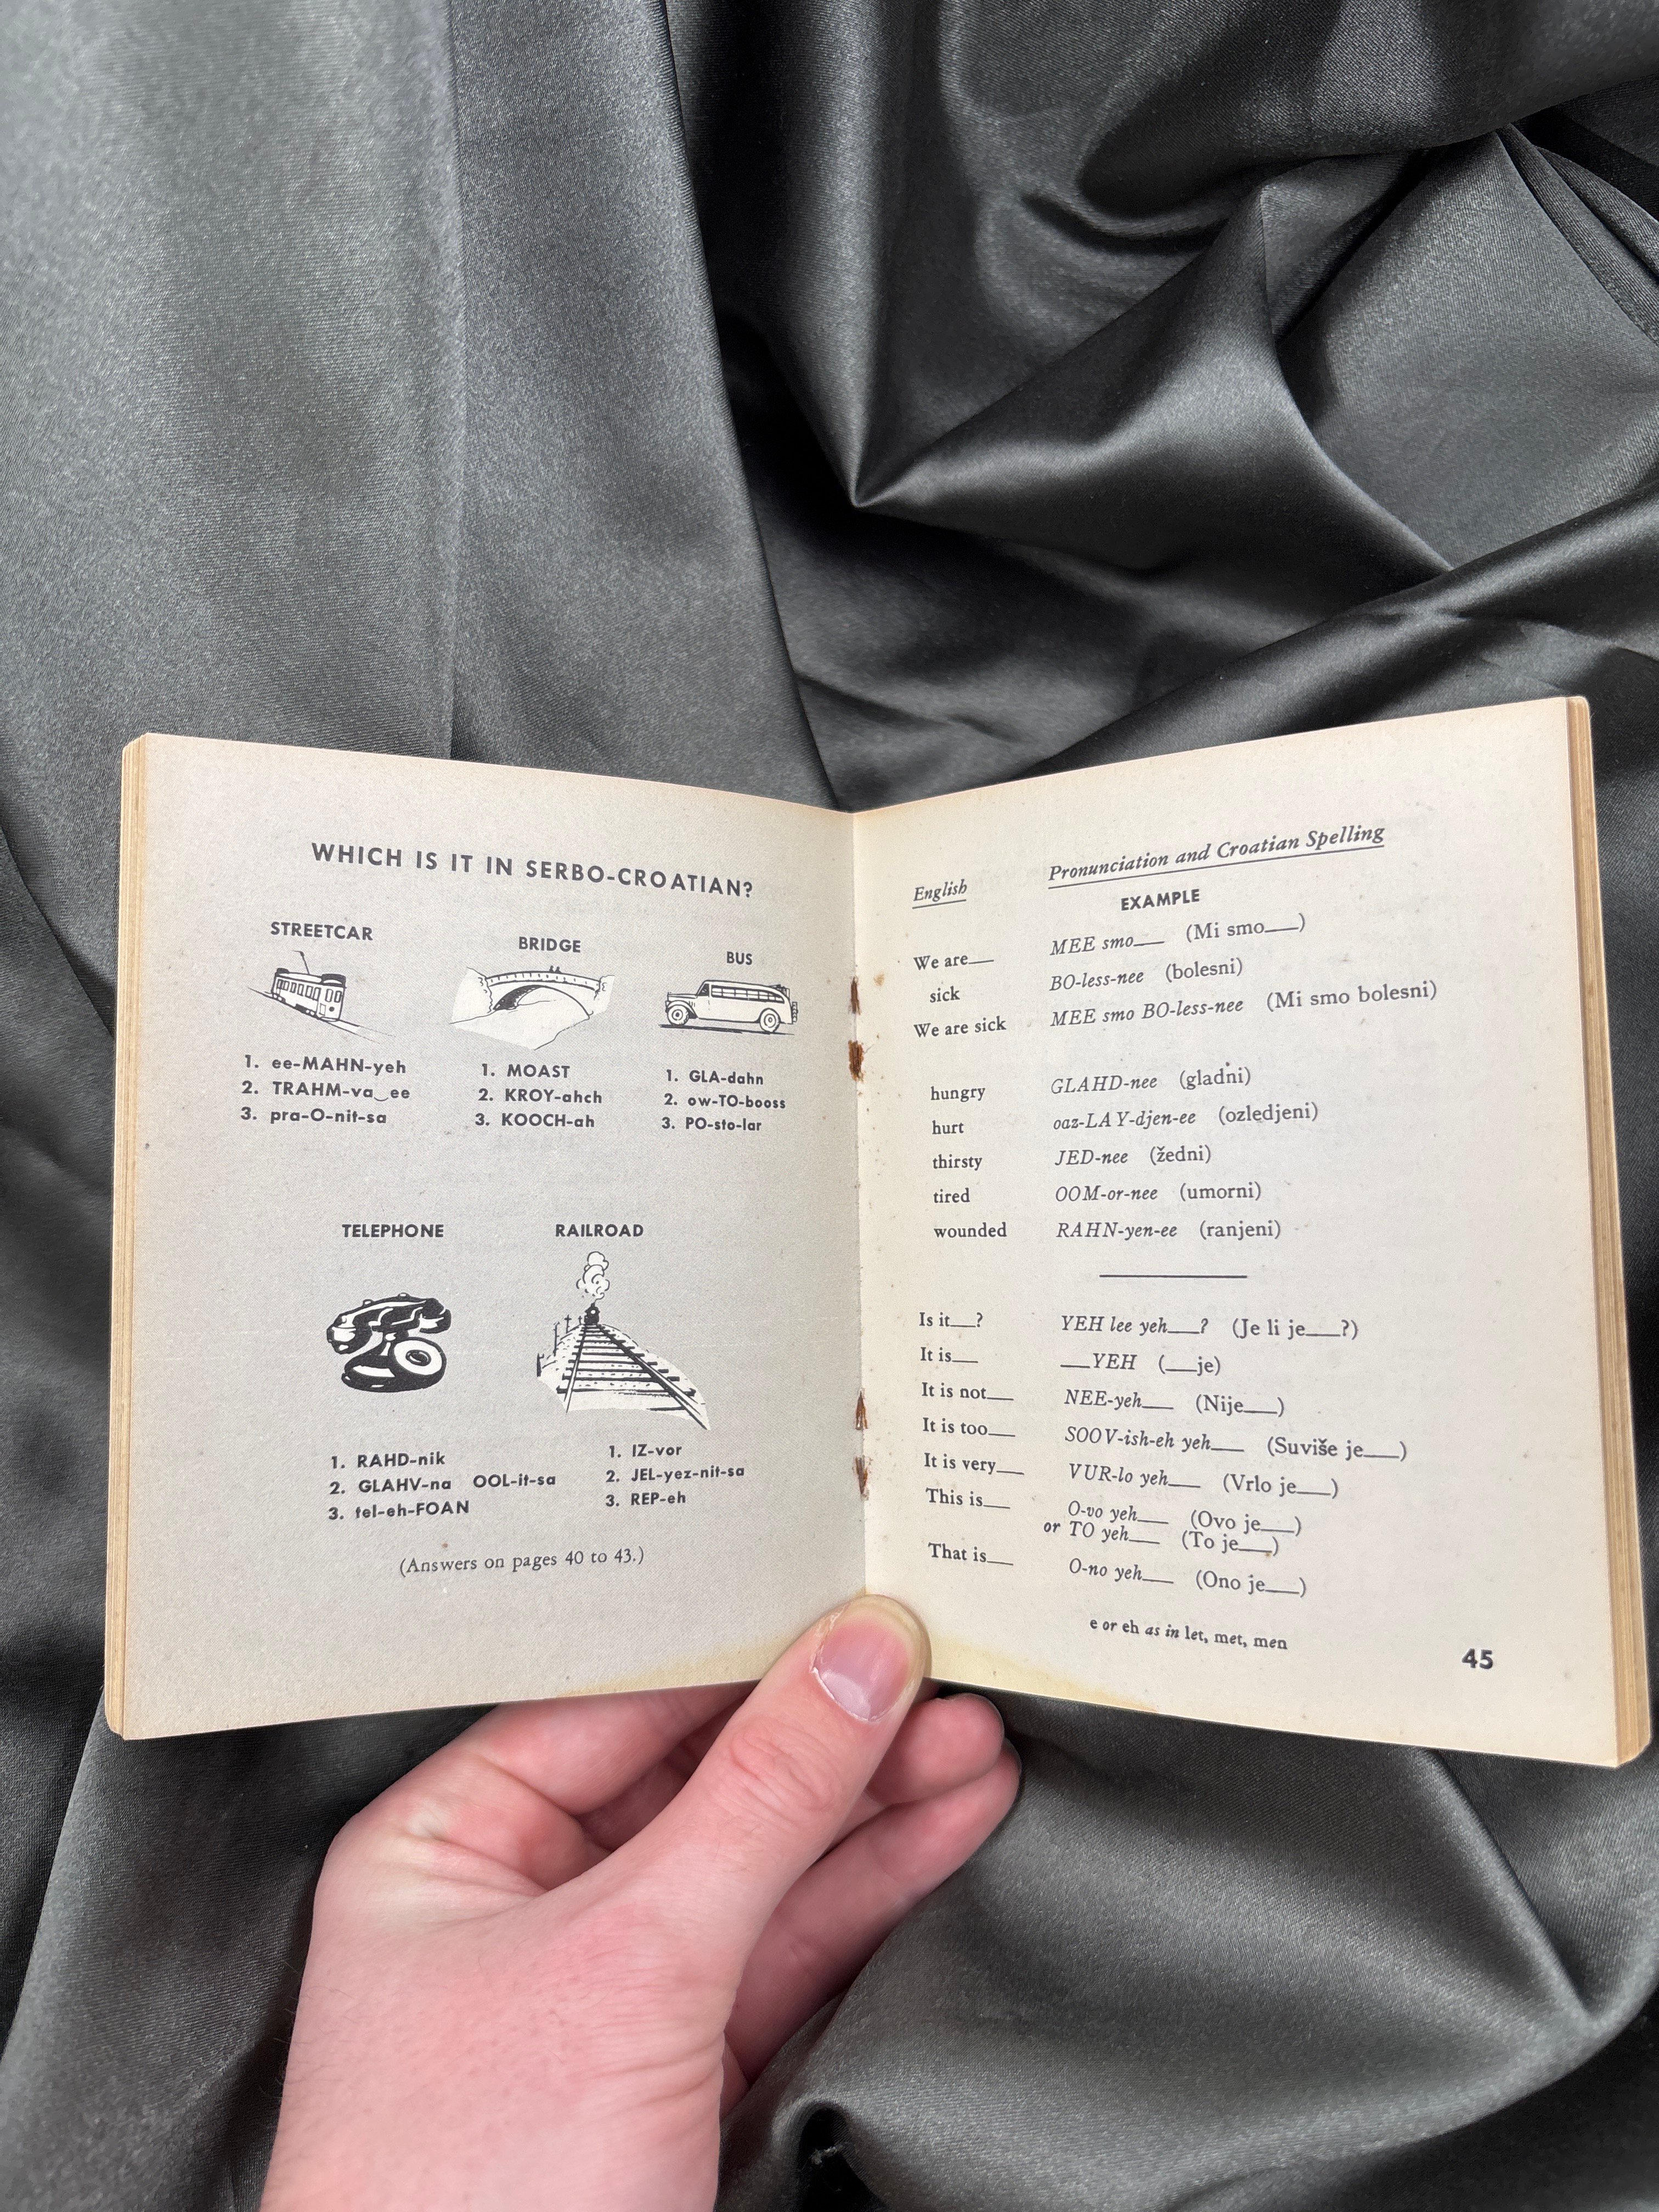 WHICH IS IT IN SERBO-CROATIAN?
STREETCAR
1. ee-MAHN-yeh
2. TRAHM-va‿ee
3. pra-O-nit-sa
BRIDGE
1. MOAST
2. KROY-ahch
3. KOOCH-ah
BUS
1. GLA-dahn
2. ow-TO-booss
3. PO-sto-lar
TELEPHONE
1. RAHD-nik
2. GLAHV-na OOL-it-sa
3. tel-eh-FOAN
RAILROAD
1. IZ-vor
2. JEL-yez-nit-sa
3. REP-eh
(Answers on pages 40 to 43.)
English Pronunciation and Croatian Spelling
EXAMPLE
We are___ MEE smo___ (Mi smo___)
sick BO-less-nee (bolesni)
We are sick MEE smo BO-less-nee (Mi smo bolesni)
hungry GLAHD-nee (gladni)
hurt oaz-LAY-djen-ee (ozledjeni)
thirsty JED-nee (žedni)
tired OOM-or-nee (umorni)
wounded RAHN-yen-ee (ranjeni)
Is it___? YEH lee yeh___? (Je li je___?)
It is___ ___YEH (___je)
It is not___ NEE-yeh___ (Nije___)
It is too___ SOOV-ish-eh yeh___ (Suviše je___)
It is very___ VUR-lo yeh___ (Vrlo je___)
This is___ O-vo yeh___ (Ovo je___)
or TO yeh___ (To je___)
That is___ O-no yeh___ (Ono je___)
e or eh as in let, met, men
45